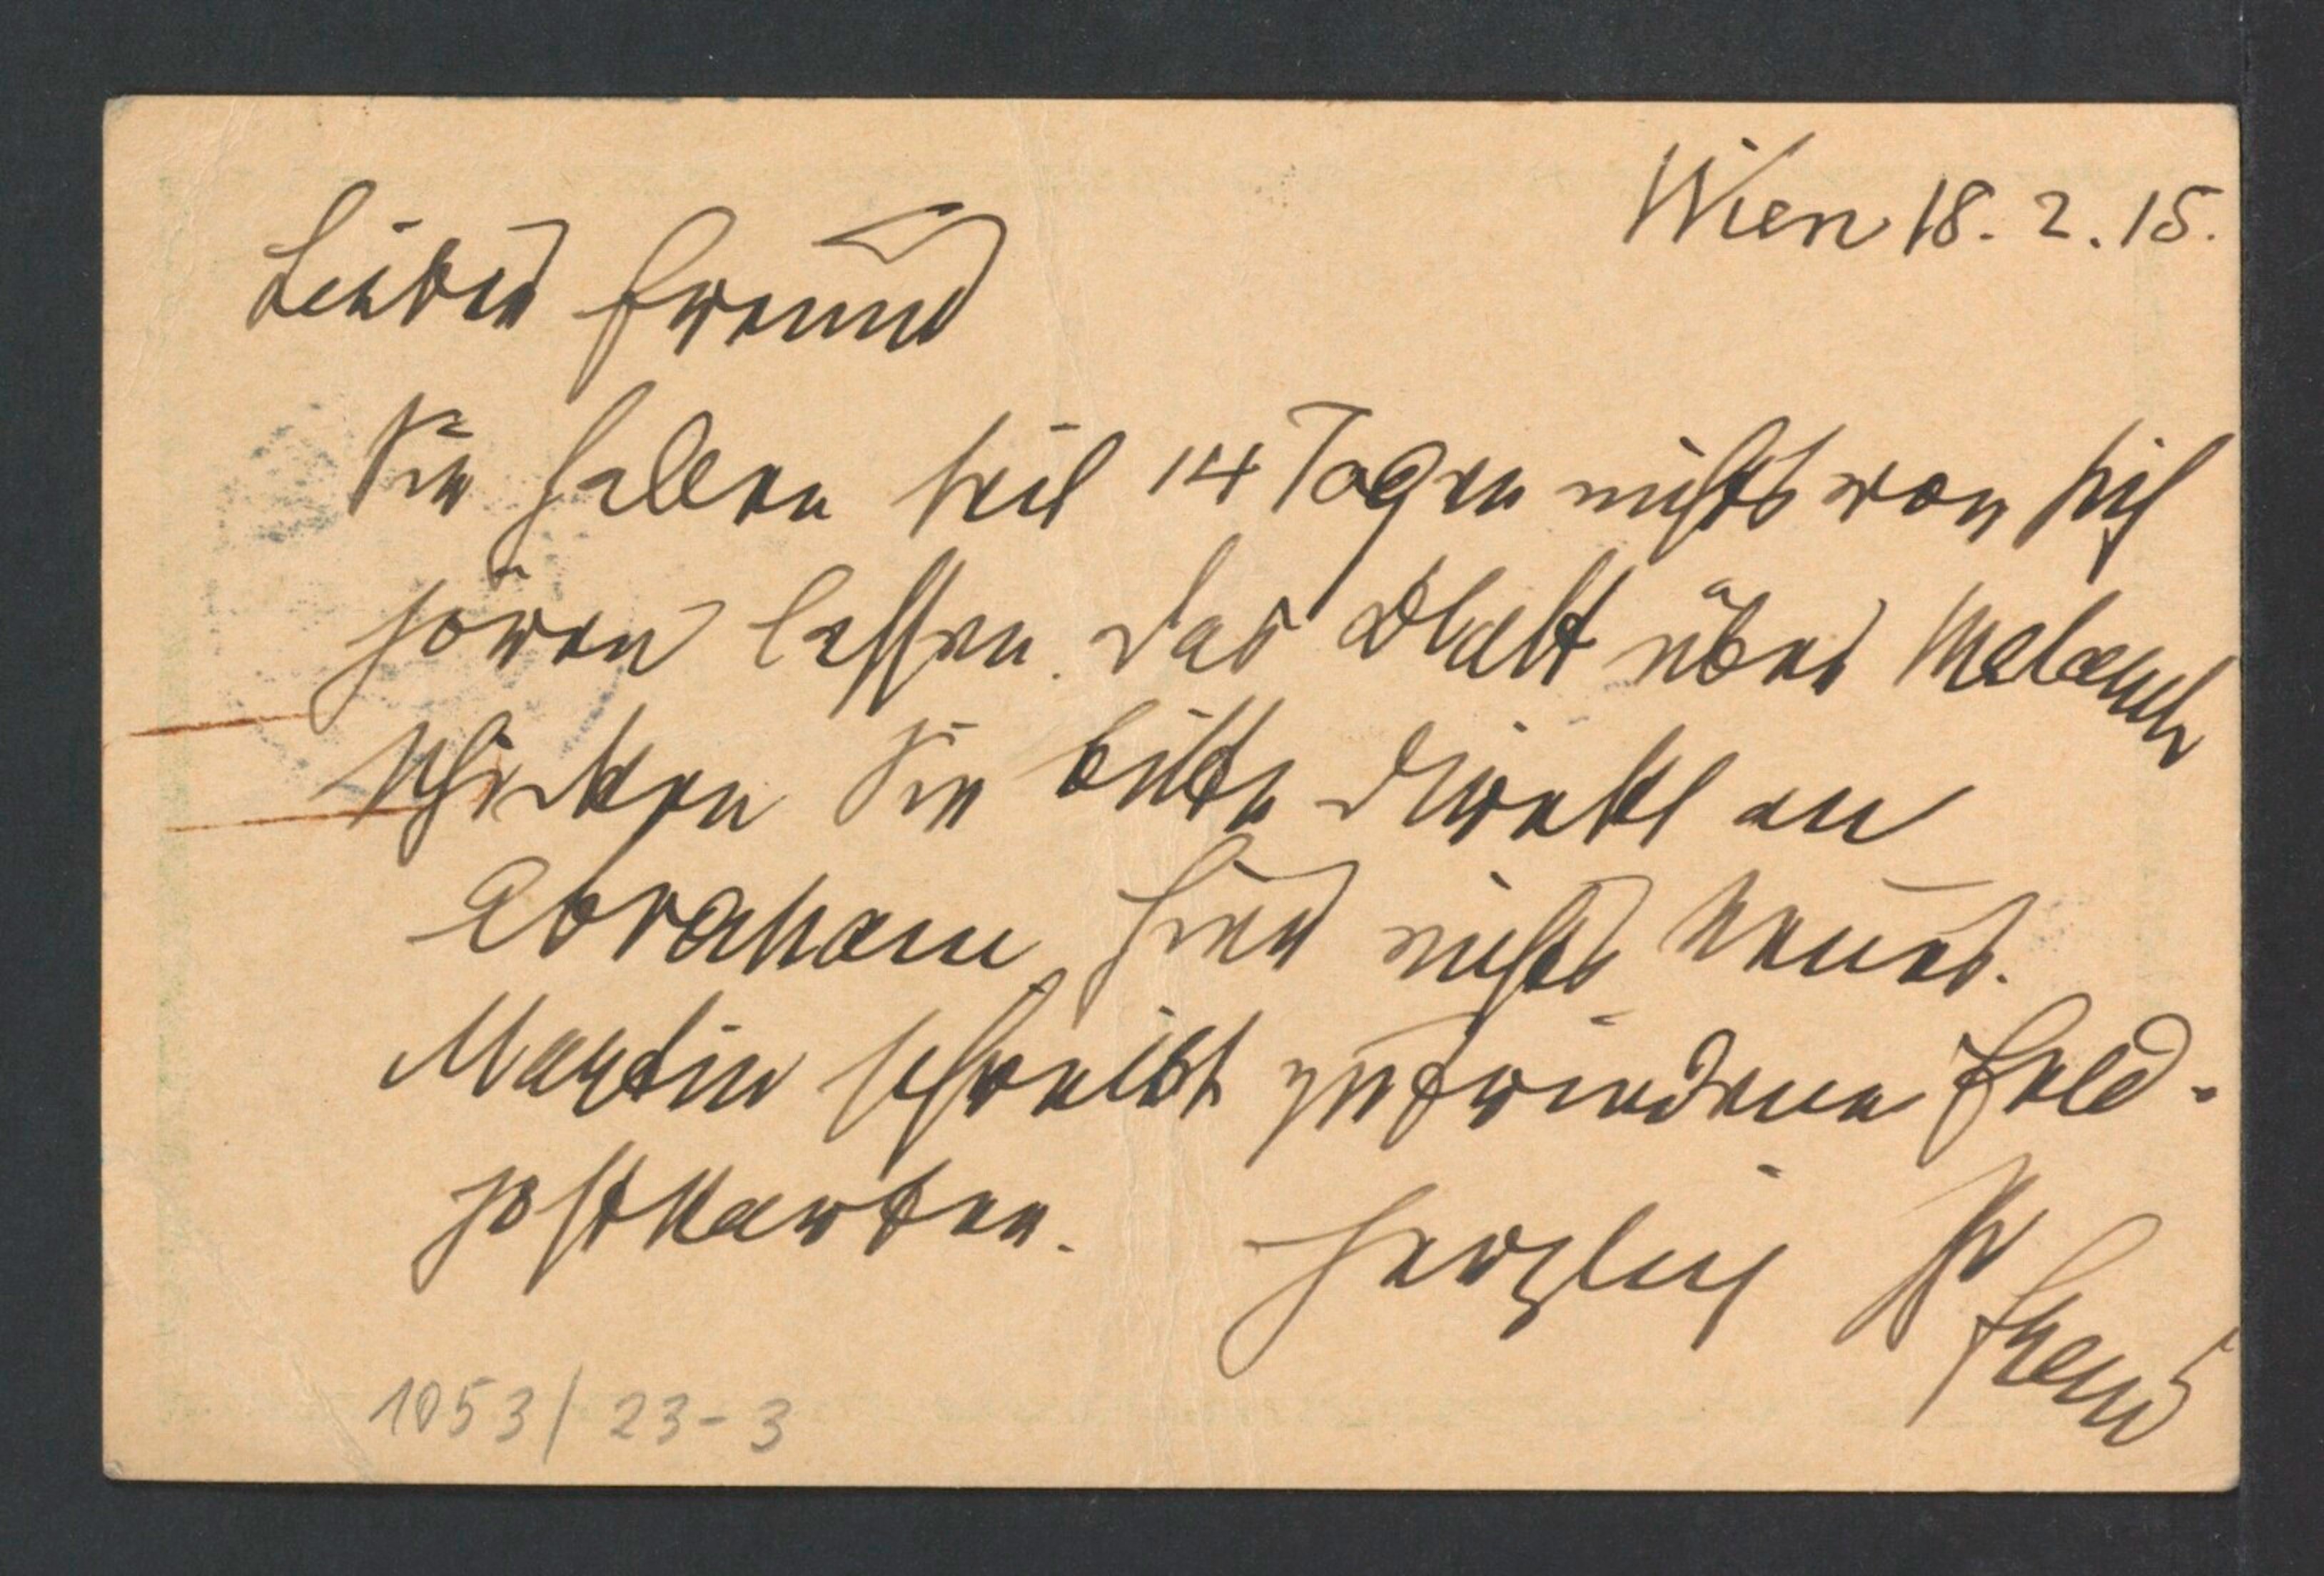 Wien 18. 2. 15.
Lieber Freund
Sie haben seit 14 Tagen nichts von sich
hören lassen. Das Blatt über Melanch
schicken Sie bitte direkt an
Abraham, hier nichts Neues.
Martin schreibt zufriedene Feld-
postkarten.
Herzlich Ihr
Freud
1053/23-3